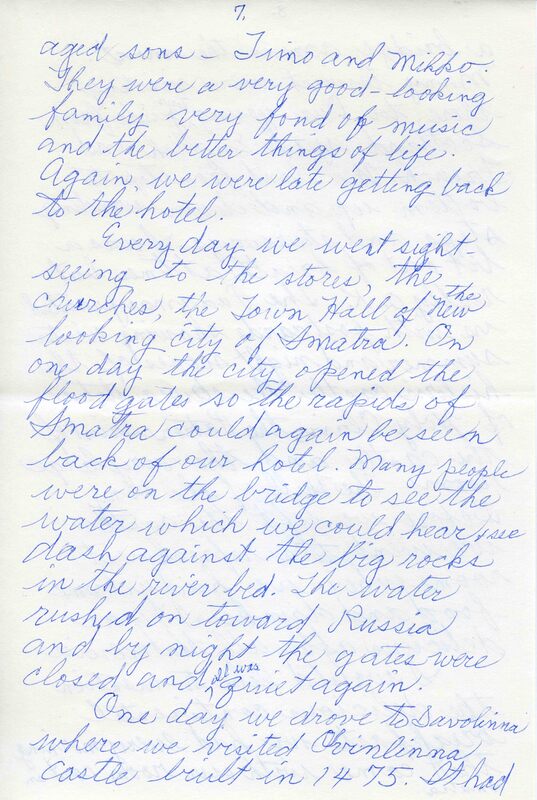 7.
aged sons – Timo and Mikko.
They were a very good-looking
family very fond of music
and the better things of life.
Again, we were late getting back
to the hotel.
Every day we went sight-
seeing to the stores, the
churches, the Town Hall of the New
looking city of Imatra. On
one day the city opened the
flood gates so the rapids of
Imatra could again be seen
back of our hotel. Many people
were on the bridge to see the
water which we could hear & see
dash against the big rocks
in the river bed. The water
rushed on toward Russia
and by night the gates were
closed and it was quiet again.
One day we drove to Savolinna
where we visited Olvinlinna
Castle built in 1475. It had